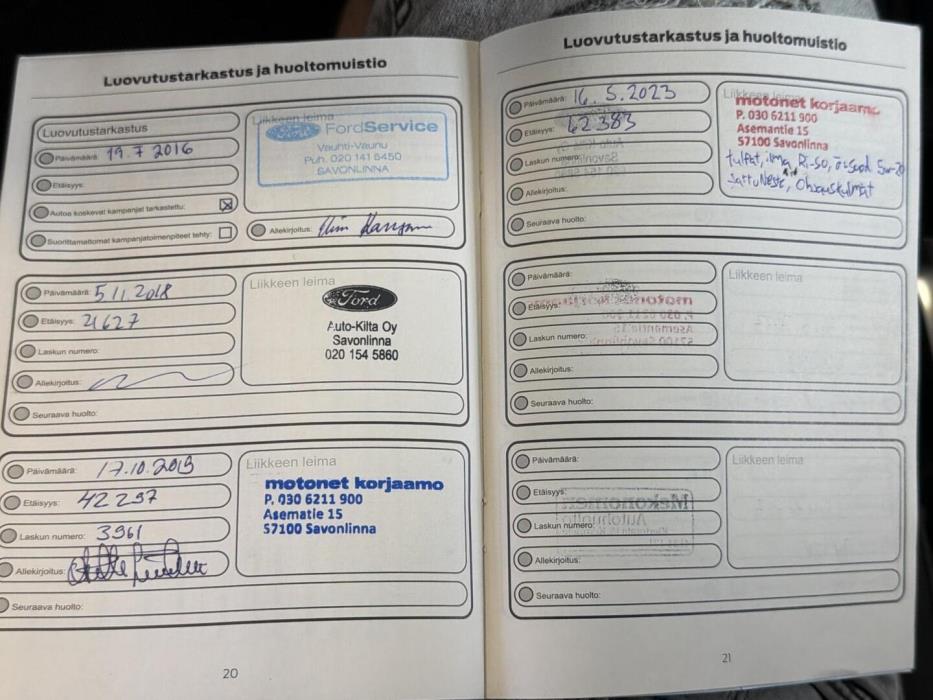 Luovutustarkastus ja huoltomuistio
Luovutustarkastus
Päivämäärä: 19.7 2016
Etäisyys:
Autoa koskevat kampanjat tarkastettu:
Suorittamattomat kampanjatoimenpiteet tehty:
Liikkeen leima
Ford FordService
Vauhti-Vaunu
Puh. 020 141 5450
SAVONLINNA
Allekirjoitus:
Päivämäärä: 5.11.2018
Etäisyys: 21627
Laskun numero:
Allekirjoitus:
Seuraava huolto:
Liikkeen leima
Ford
Auto-Kilta Oy
Savonlinna
020 154 5860
Päivämäärä: 17.10.2019
Etäisyys: 42297
Laskun numero: 3961
Allekirjoitus:
Seuraava huolto:
Liikkeen leima
motonet korjaamo
P. 030 6211 900
Asematie 15
57100 Savonlinna
20
Luovutustarkastus ja huoltomuistio
Päivämäärä: 16.5.2023
Etäisyys: 42383
Laskun numero:
Allekirjoitus:
Seuraava huolto:
Liikkeen leima
motonet korjaamo
P. 030 6211 900
Asemantie 15
57100 Savonlinna
tulpat, ilma, Ri-so, 5w-20
Jarruneste, Ohjauskulmat
Päivämäärä:
Etäisyys:
Laskun numero:
Allekirjoitus:
Seuraava huolto:
Liikkeen leima
Päivämäärä:
Etäisyys:
Laskun numero:
Allekirjoitus:
Seuraava huolto:
Liikkeen leima
21